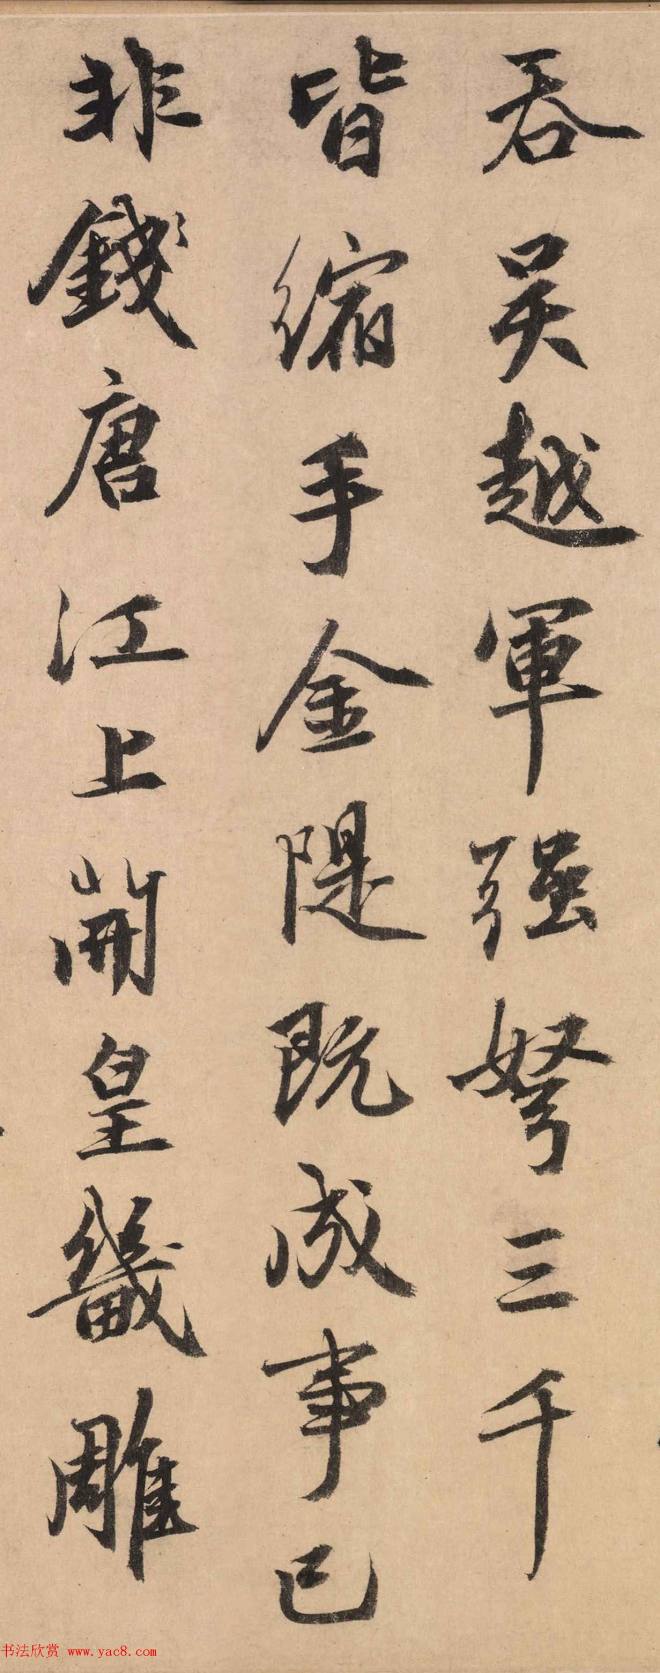 吞吴越軍强弩三千
皆縮手金隄既成事已
非錢唐江上開皇畿雕
书法欣赏 www.yac8.com